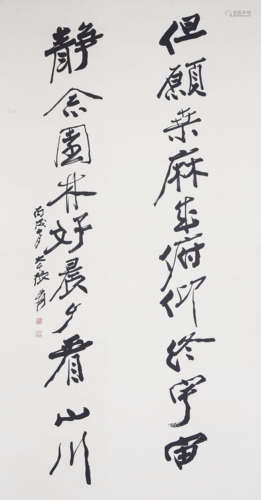 但願桒麻成俯仰終宇宙
靜念園林好晨夕看山川
丙戌 大千張爰